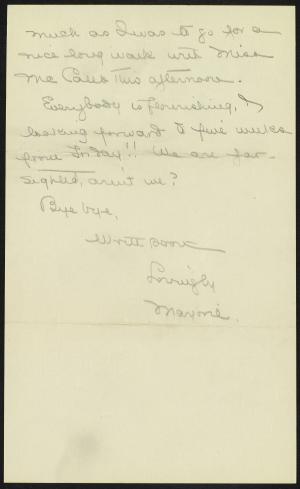 much as I was to go for a
nice long walk with Miss
Mc Caleb this afternoon.
Everybody is flourishing, &
looking forward to five weeks
from Friday!! We are far-
sighted, aren't we?
Bye bye,
Write soon
Lovingly
Marjorie.